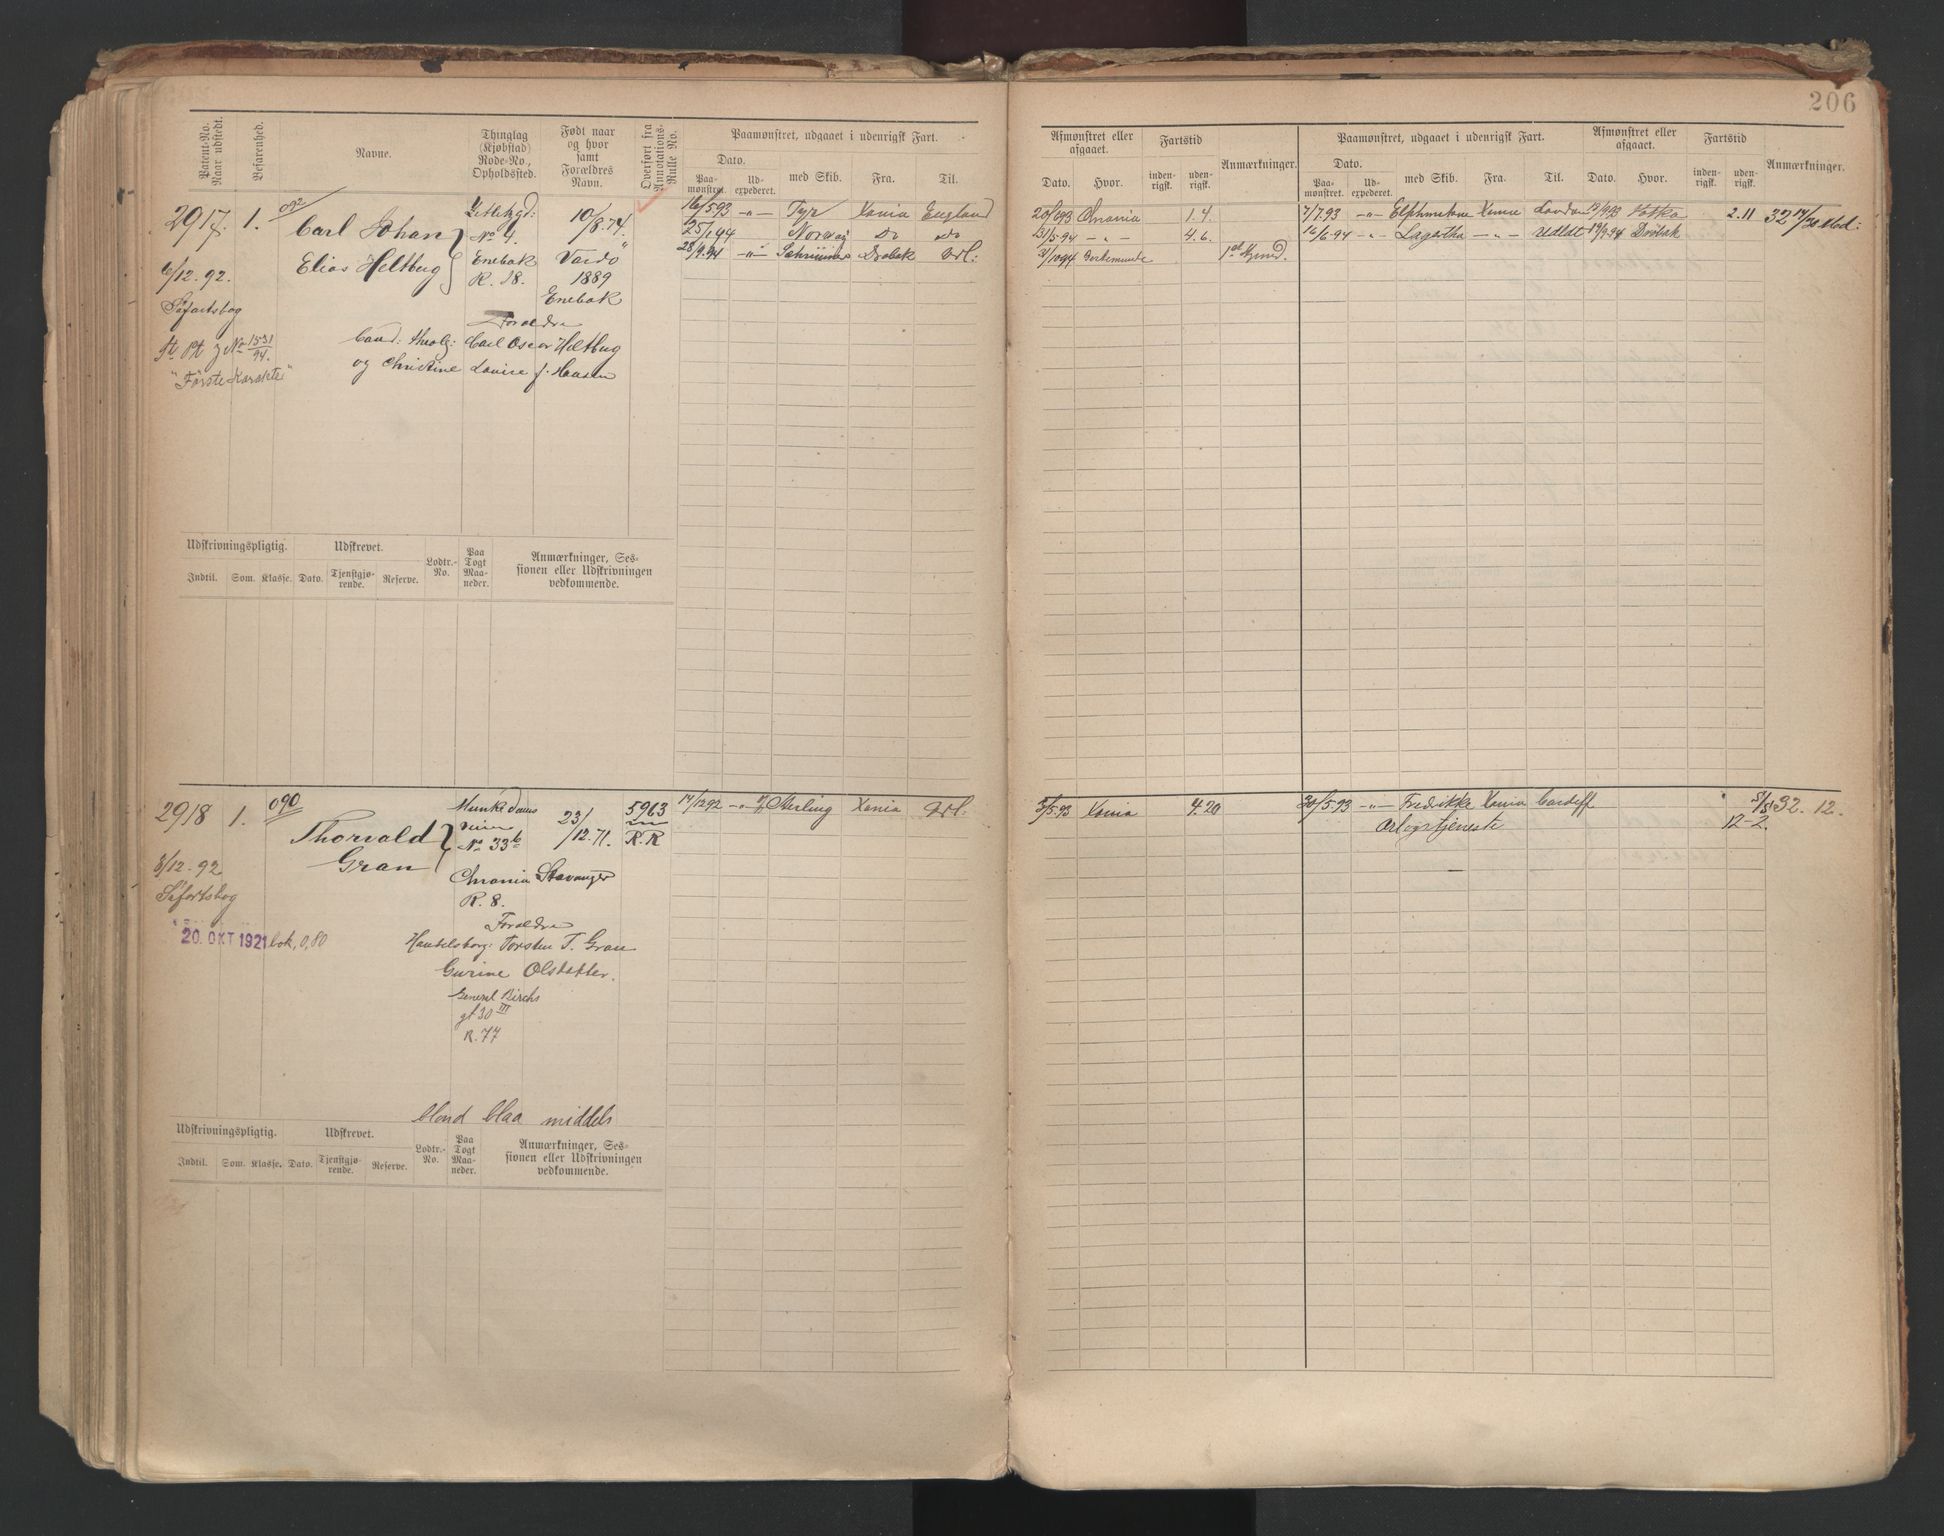 206
Patent-No. Naar udstedt.
Befarenhed.
Navne.
Thinglag (Kjøbstad) Rode-No., Opholdssted.
Født naar og hvor samt Forældres Navn.
Overført fra Annotations-Rulle No.
Paamønstret, udgaaet i udenrigsk Fart.
Dato.
Paamønstret. Udexpederet. med Skib. Fra. Til.
Afmønstret eller afgaaet.
Dato. Hvor.
Fartstid
indenrigsk. udenrigsk.
Anmærkninger.
Paamønstret, udgaaet i udenrigsk Fart.
Dato.
Paamønstret. Udexpederet. med Skib. Fra. Til.
Afmønstret eller afgaaet.
Dato. Hvor.
Fartstid
indenrigsk. udenrigsk.
Anmærkninger.
2917. 1. 092
Carl Johan
Elias Heltbug
No 4.
Enebak
R. 18.
10/8.74.
Vardö
1889
Enebak
6/12.92.
Søfartsbog
No 1531/94.
"Første Karakter"
Foraldre
Cand: theolg: Carl Oscar Heltbug
og Christine Louise f. Hansen
16/5.93 -"- Tyr Xania England
25/1.94 Norway Do Do
28/9.94 -"- Drobak Udl:
20/6.93 Chrania 1.4.
31/5.94 -"- 4.6.
31/10.94
7/7.93 -"- London 19/9.93 2.11
16/6.94 -"- Lagertha -"- Udldt 19/9.94 Drøbak
Udskrivningspligtig. Udskrevet. Lodtr.-No. Paa Togt Maaneder. Anmærkninger, Sessionen eller Udskrivningen vedkommende.
Indtil. Som. Klasse. Dato. Tjenstgjørende. Reserve.
2918 1. 090
Thorvald
Gran
Munkedams
veien
No 33b
Chrania Stavanger
R. 8.
23/12.71.
5963
R.R
8/12.92
Søfartsbog
20. OKT 1921 bok, 0,80
Foraldre
Handelsborg: Torsten T. Gran
Gurine Olstatter.
General Birchs
gt 30 III
R. 77
blond blaa middels
17/12.92 -"- Sterling Xania Udl.
5/5.93 Xania 4.20
30/5.93 -"- Fredrikke Xania Cardiff
Orlogstjeneste
12-2.
32. 12.
Udskrivningspligtig. Udskrevet. Lodtr.-No. Paa Togt Maaneder. Anmærkninger, Sessionen eller Udskrivningen vedkommende.
Indtil. Som. Klasse. Dato. Tjenstgjørende. Reserve.